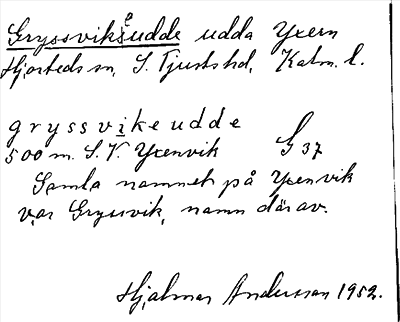 Gryssviksudde udda Yxern
Hjorteds sn, S. Tjusts hd, Kalm. l.
gryssvikeudde
500 m. S.V. Yxenvik G 37
Gamla namnet på Yxenvik
var Gryssvik, namn därav.
Hjalmar Andersson 1952.